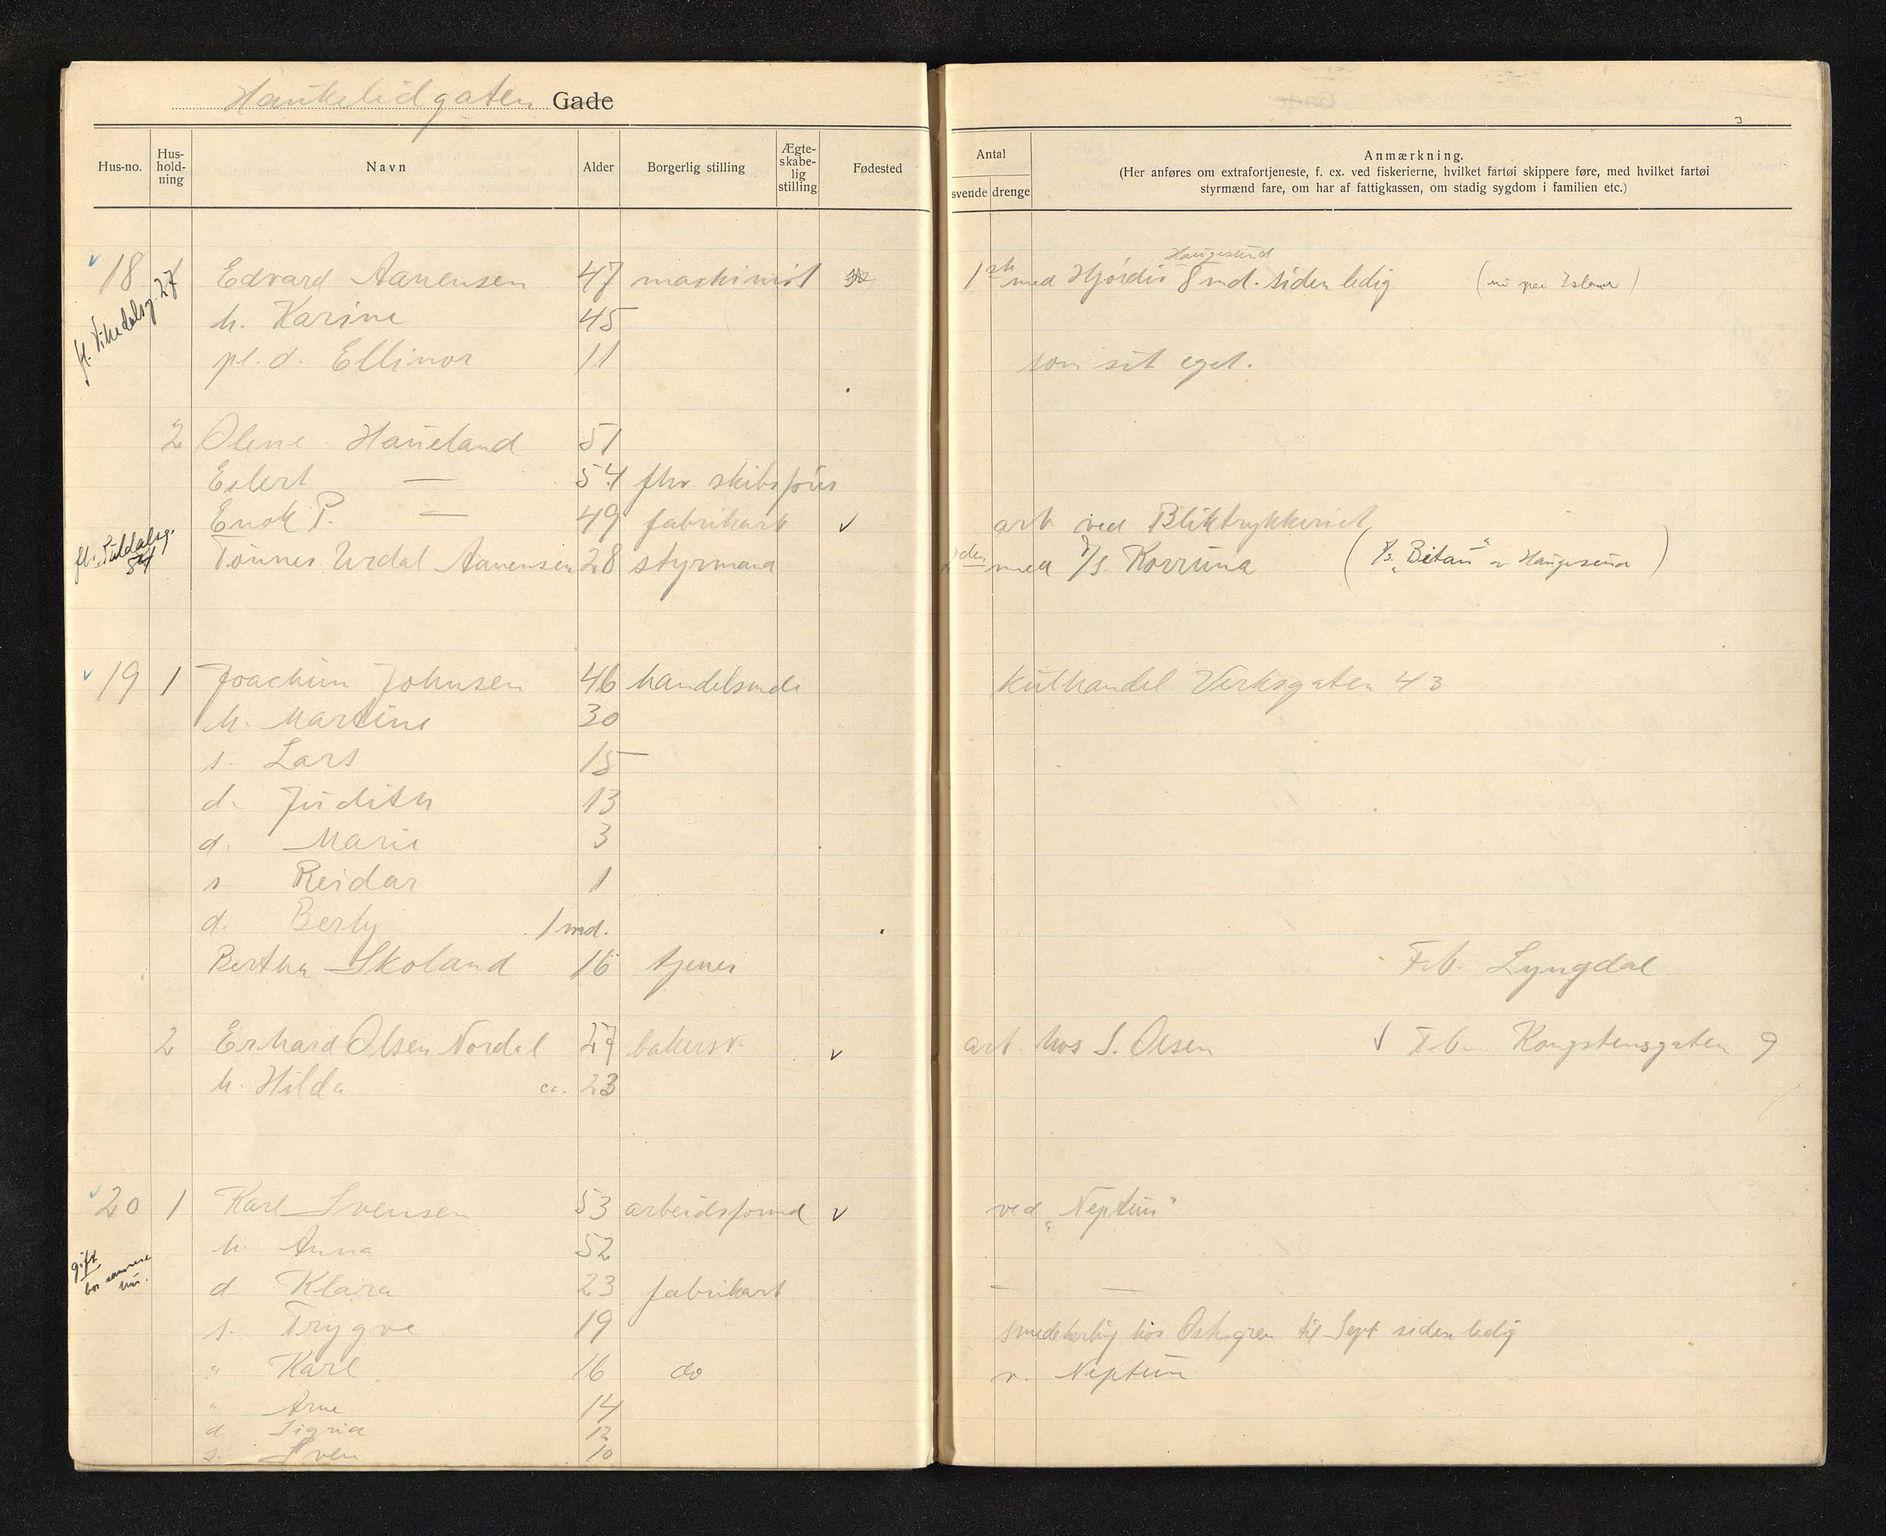 Haukelidgaten Gade
Hus-no. Hus-hold-ning Navn Alder Borgerlig stilling Ægte-skabe-lig stilling Fødested
Antal svende drenge
Anmærkning.
(Her anføres om extrafortjeneste, f. ex. ved fiskerierne, hvilket fartøi skippere føre, med hvilket fartøi
styrmænd fare, om har af fattigkassen, om stadig sygdom i familien etc.)
3
Haugesund
18 1 Edvard Aanensen 47 maskinist med Hjördis 8 md. siden ledig (nu paa Island)
fl. Vikedalsg. 27
h. Karine 45
pl. d. Ellinor 11 som sit eget.
2 Olene Haueland 51
Eilert — 54 fhv skibsförer
Enok P. — 49 fabrikarb v arb ved Bliktrykkeriet
fl. Suldalsg. 84
Tönnes Urdal Aanensen 28 styrmand 2den med D/S. Korruna (D/s. „Bitau" av Haugesund)
19 1 Joachim Johnsen 46 handelsmd. kulhandel Verksgaten 43
h. Martine 30
s. Lars 15
d. Judith 13
d. Marie 3
s Reidar 1
d. Berly 1 md.
Bertha Skoland 16 tjener F.b. Lyngdal
2 Erhard Olsen Nordal 27 bakersv. v arb. hos S. Olsen F.b. Kongstensgaten 9
h. Hilda ca. 23
20 1 Karl Svensen 53 arbeidsformd v ved „Neptun"
h. Anna 52
gift
bor samme
hus.
d Klara 23 fabrikarb — —
s. Trygve 19 smedelærling hos Oskgren til Sept siden ledig
" Karl 16 do v. Neptun
" Arne 14
d Sigrid 12
s. Sven 10